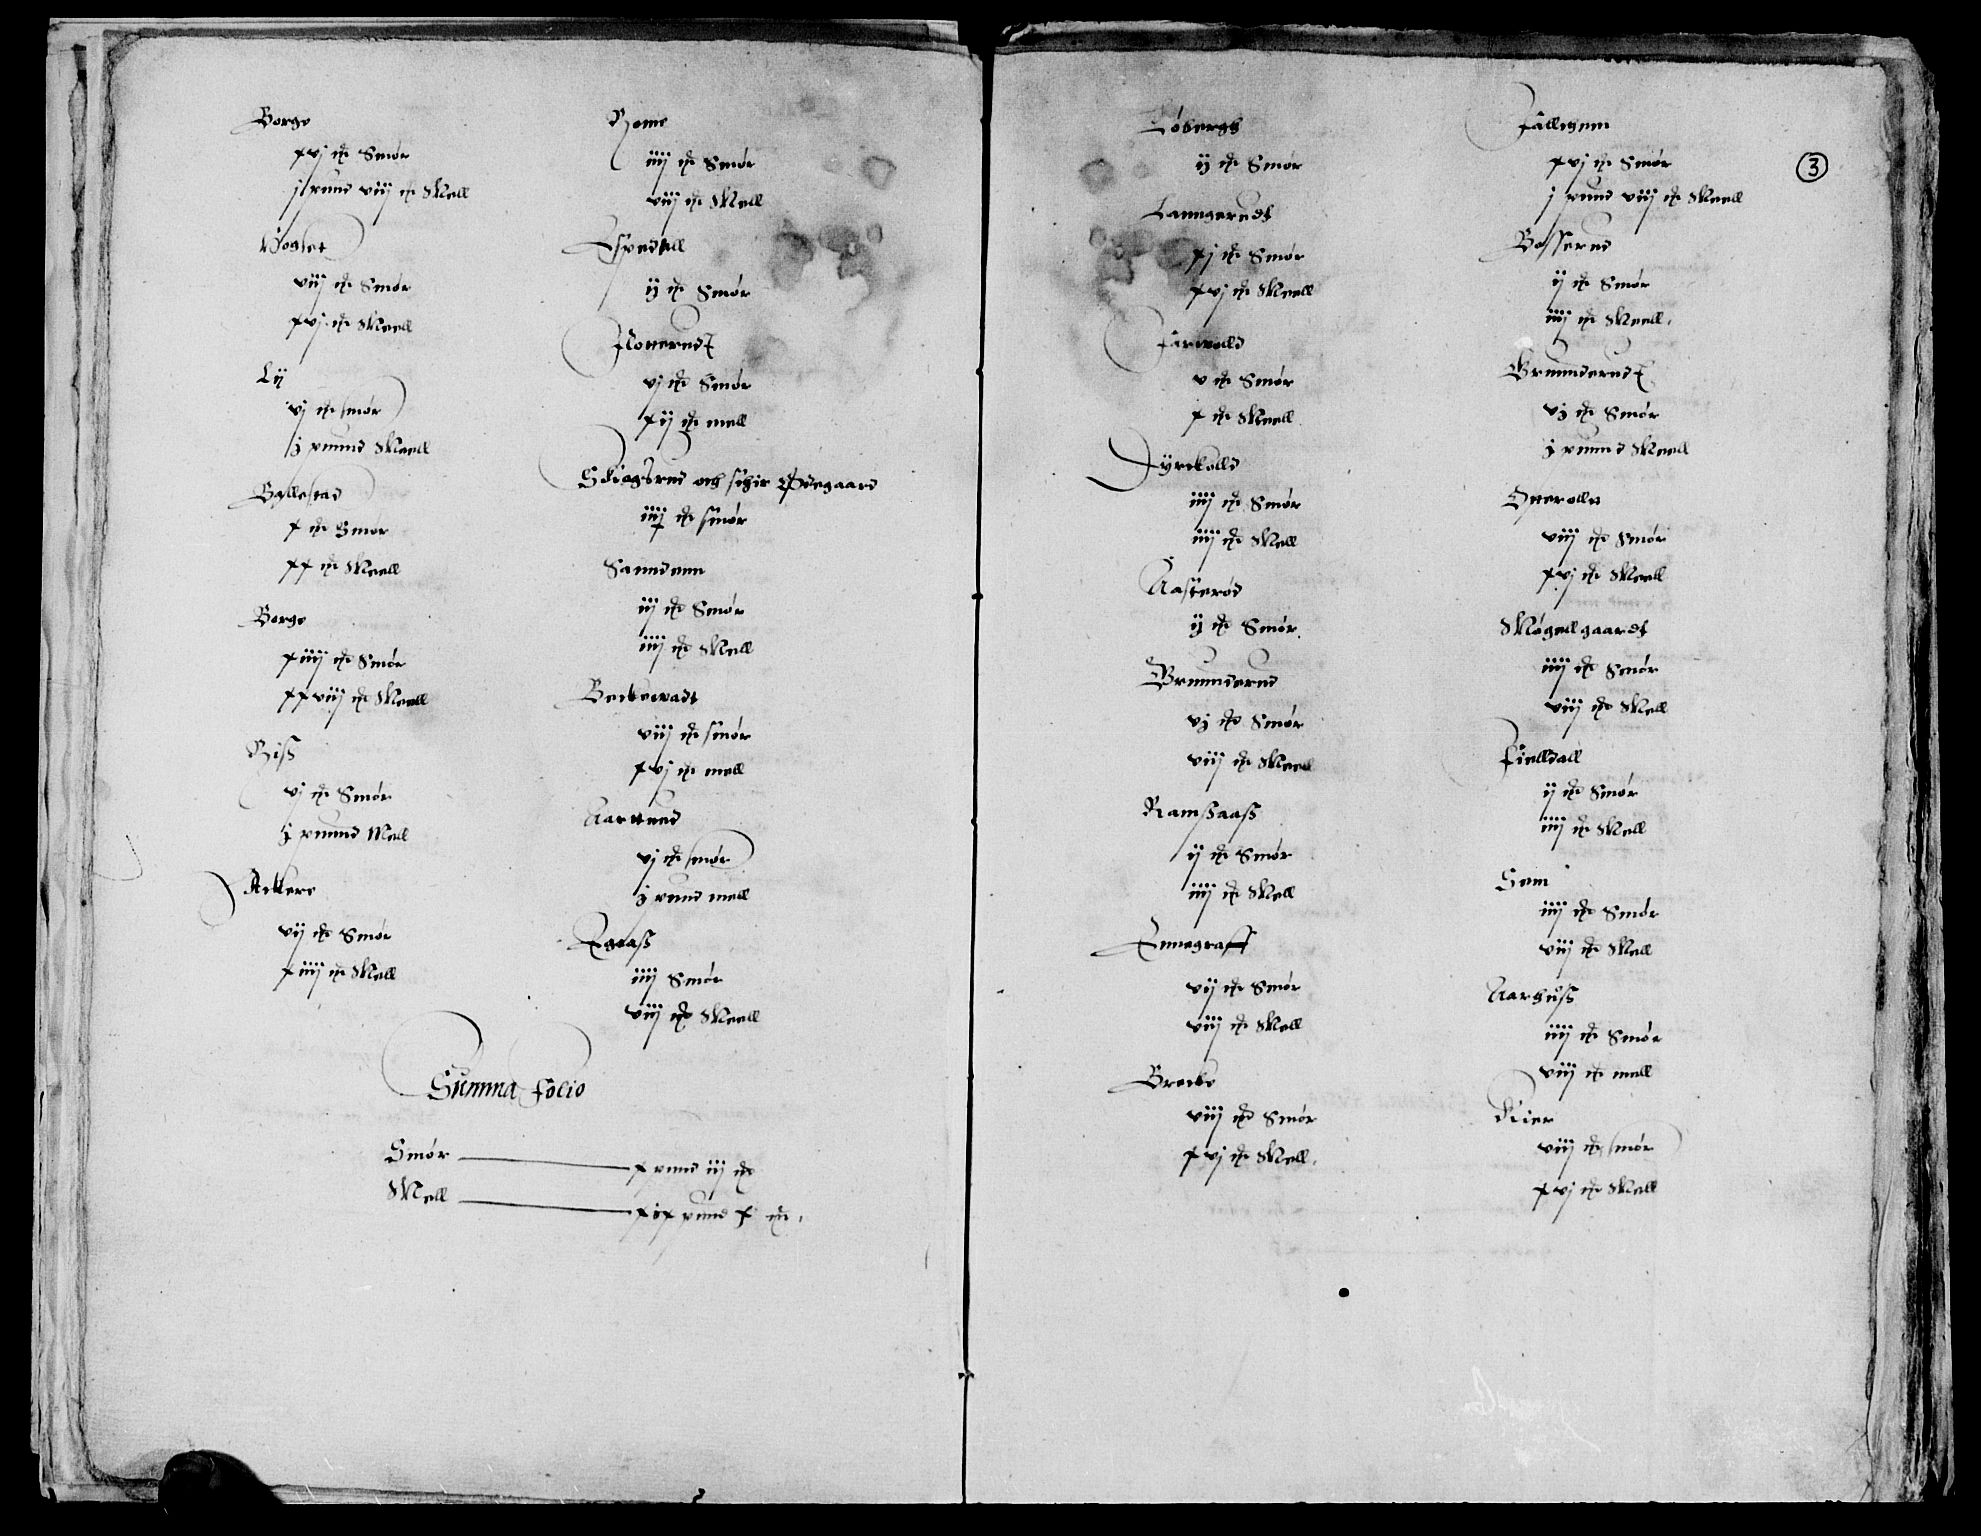 Borge
xvj ℔ Smør
j pund viij ℔ Mell
viij ℔ Smør
xvj ℔ Meell
Lij
vj ℔ smør
j puund Meell
Bollestad
x ℔ Smør
xx ℔ Meell
Borge
xiiij ℔ Smør
xxviij ℔ Meell
Riß
vj ℔ Smør
j puund Mell
Ackere
vij ℔ Smør
xiiij ℔ Mell
Rome
iiij ℔ Smør
viij ℔ Mell
Espedall
ij ℔ Smør
vj ℔ Smør
xij ℔ mell
Skiogsrud och
Ødegaard
iiij ℔ smør
Sanndenn
iij ℔ Smør
iiij ℔ Mell
Beckevadt
viij ℔ smør
xvj ℔ mell
vj ℔ smør
j pund mell
Egaaß
iiij Smør
viij ℔ Meell
Summa Folio
Smør — x pund iij ℔
Mell — xix pund x ℔.
3
Løbergh
ij ℔ Smør
Lanngerudt
xj ℔ Smør
xvj ℔ Meell
v ℔ Smør
x ℔ Meell
Dyrckolld
iiij ℔ Smør
iiij ℔ Mell
Aasterød
ij ℔ Smør
Bruunderud
vj ℔ Smør
viij ℔ Meell
Ramßaaß
ij ℔ Smør
iiij ℔ Mell
Ennegraff
vij ℔ Smør
viij ℔ Mell
Brecke
viij ℔ Smør
xvj ℔ Mell.
xvj ℔ Smør
j pund viij ℔ Meell
Bosserud
ij ℔ Smør
iiij ℔ Meell.
Bruunderudt
vj ℔ Smør
j puund Meell
viij ℔ Smør
xvj ℔ Meell
Møgellgaardt
iiij ℔ Smør
viij ℔ Mell
Fielldall
ij ℔ Smør
iiij ℔ Mell
Sem
iiij ℔ Smør
viij ℔ Mell
Aarhuß
iiij ℔ Smør
viij ℔ mell
Kier
viij ℔ smør
xvj ℔ Mell